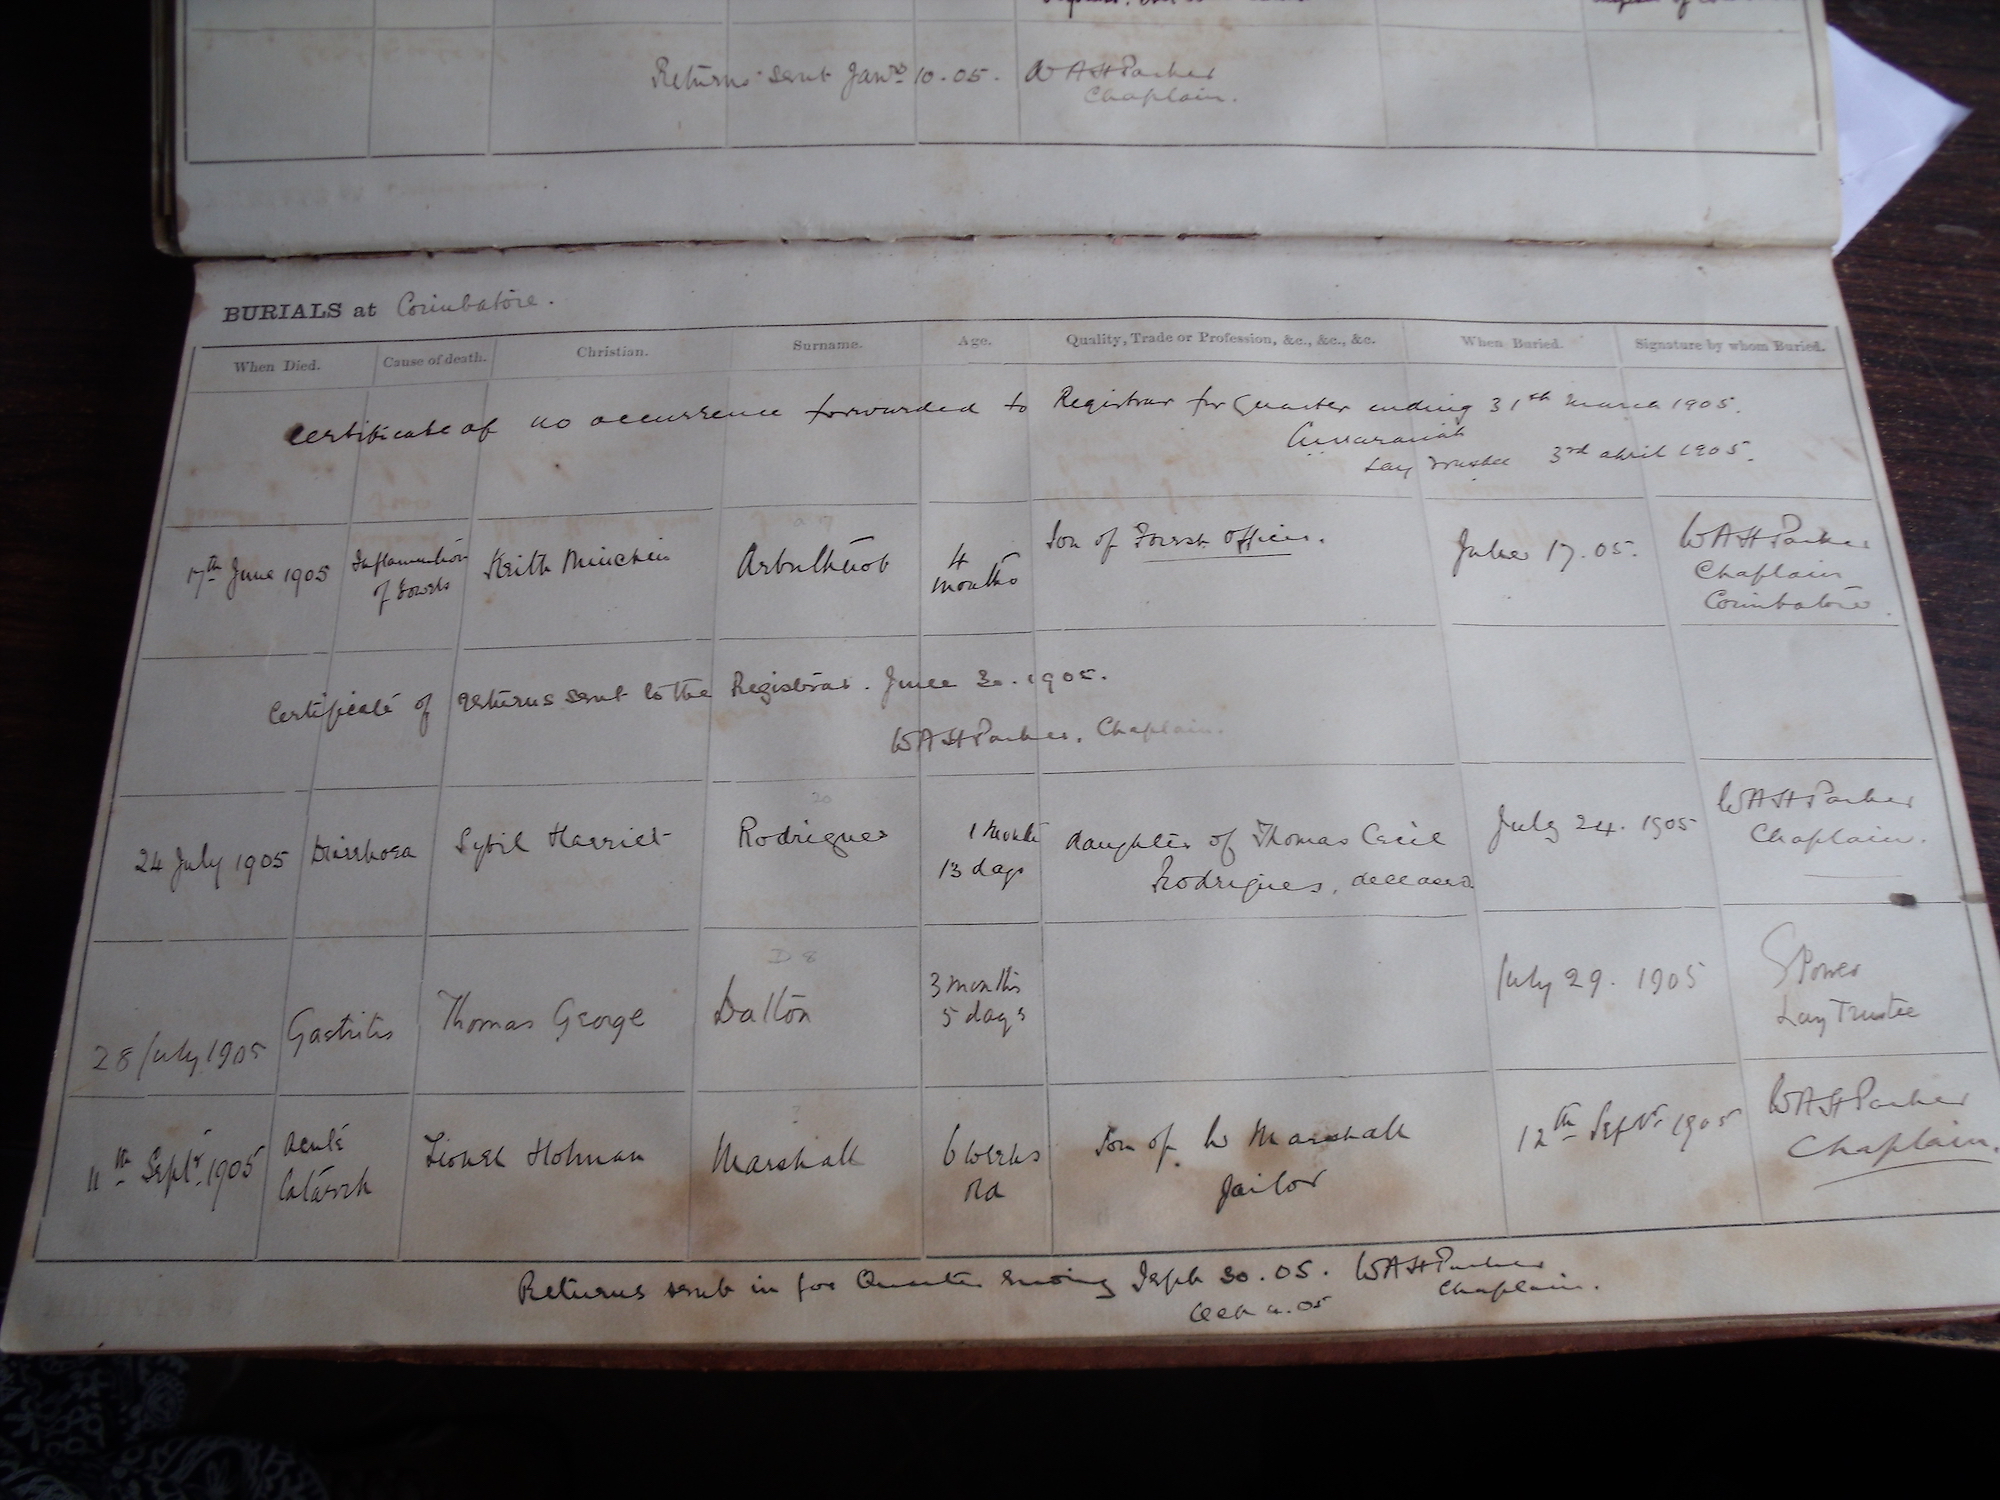 Returns sent Jany 10.05. W A H Parker
Chaplain.
BURIALS at Coimbatore.
When Died. Cause of death. Christian. Surname. Age. Quality, Trade or Profession, &c., &c., &c. When Buried. Signature by whom Buried.
Certificate of no occurrence forwarded to Registrar for Quarter ending 31st March 1905.
Lay Trustee 3rd April 1905.
17th June 1905 Inflammation of bowels Keith Minchin Arbuthnot 4 months Son of Forest Officer. June 17.05. W A H Parker
Chaplain
Coimbatore.
Certificate of returns sent to the Registrar. June 30.1905.
W A H Parker, Chaplain.
20
24 July 1905 Diarrhoea Sybil Harriet Rodrigues 1 month 13 days daughter of Thomas Cecil Rodrigues, deceased July 24. 1905 W A H Parker
Chaplain.
D 8
28 July 1905 Gastritis Thomas George Dalton 3 months 5 days July 29. 1905 Power
Lay Trustee
11th Septr. 1905 Acute Catarrh Lionel Holman Marshall 6 weeks old Son of W Marshall Jailor 12th Septr. 1905 W A H Parker
Chaplain.
Returns sent in for Quarter ending Sept 30.05. W A H Parker
Chaplain.
Oct 4.05